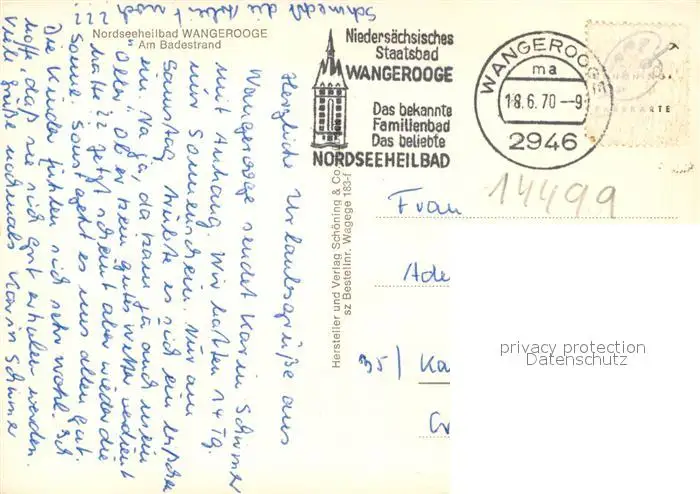 Nordseeheilbad WANGEROOGE
Am Badestrand
Niedersächsisches
Staatsbad
WANGEROOGE
Das bekannte
Familienbad
Das beliebte
NORDSEEHEILBAD
WANGEROOGE
ma
18.6.70 --9
2946
14499
Herzliche Urlaubsgrüße aus
Wangerooge sendet Karin Schirmer
mit Anhang. Wir hatten 14 Tg.
nur Sonnenschein. Nur am
Samstag trübte es sich ein bißchen
ein. Na ja, da kam ja auch mein
"Oller", ob er kein gutes Wetter verdient
hatte?? Jetzt scheint aber wieder die
Sonne. Sonst geht es uns allen gut.
Die Kinder fühlen sich sehr wohl. Ich
hoffe, daß sie sich gut erholen werden.
Viele Grüße nochmals Karin Schirmer
Schmeckt die Arbeit noch???
Hersteller und Verlag Schöning & Co
sz Bestellnr. Wagege 183-f
Frau
Ade
35/ Ka
privacy protection
Datenschutz